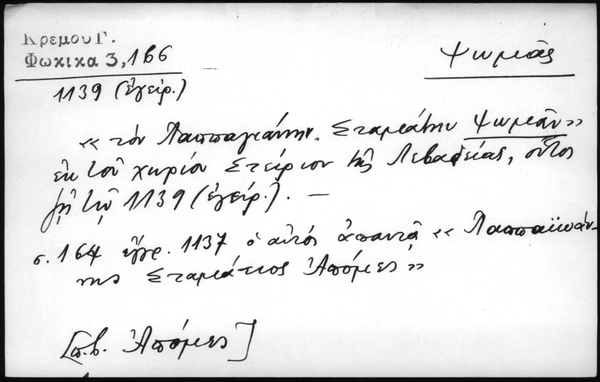 Κρεμου Γ.
Φωκικα 3, 166
Ψωμᾶς
1139 (ἐγείρ.)
« τὸν Παππαγιάννην. Σταμάτην Ψωμᾶν »
ἐκ τοῦ χωρίου Στείριον τῆς Λεβαδείας, οὗτος
ζῇ τῷ 1139 (ἐγείρ.). —
σ. 164 ἔγγρ. 1137 ὁ αὐτὸς ἀπαντᾷ « Παππαϊωάν-
νης Σταμάτιος Ἀπόμες »
[π.β. Ἀπόμες]